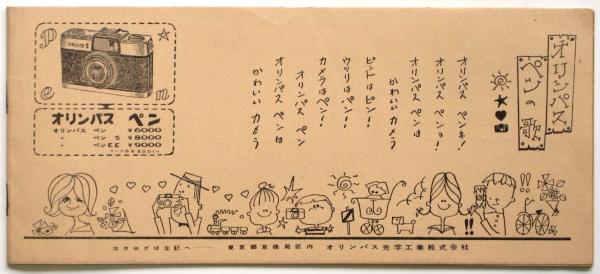 オリンパス
ペンの歌
オリンパス ペンネ!
オリンパス ペンヨ!
オリンパス ペンは
かわいい カメラ
ピントは ピン!
ウツリは パン!
カメラは ペン!
オリンパス ペン
オリンパス ペンは
かわいい カメラ
Pen
オリンパス ペン
オリンパス ペン ¥6000
〃 ペン S ¥8000
〃 ペンEE ¥9000
カタログは左記へ……… 東京都京橋局区内 オリンパス光学工業株式会社